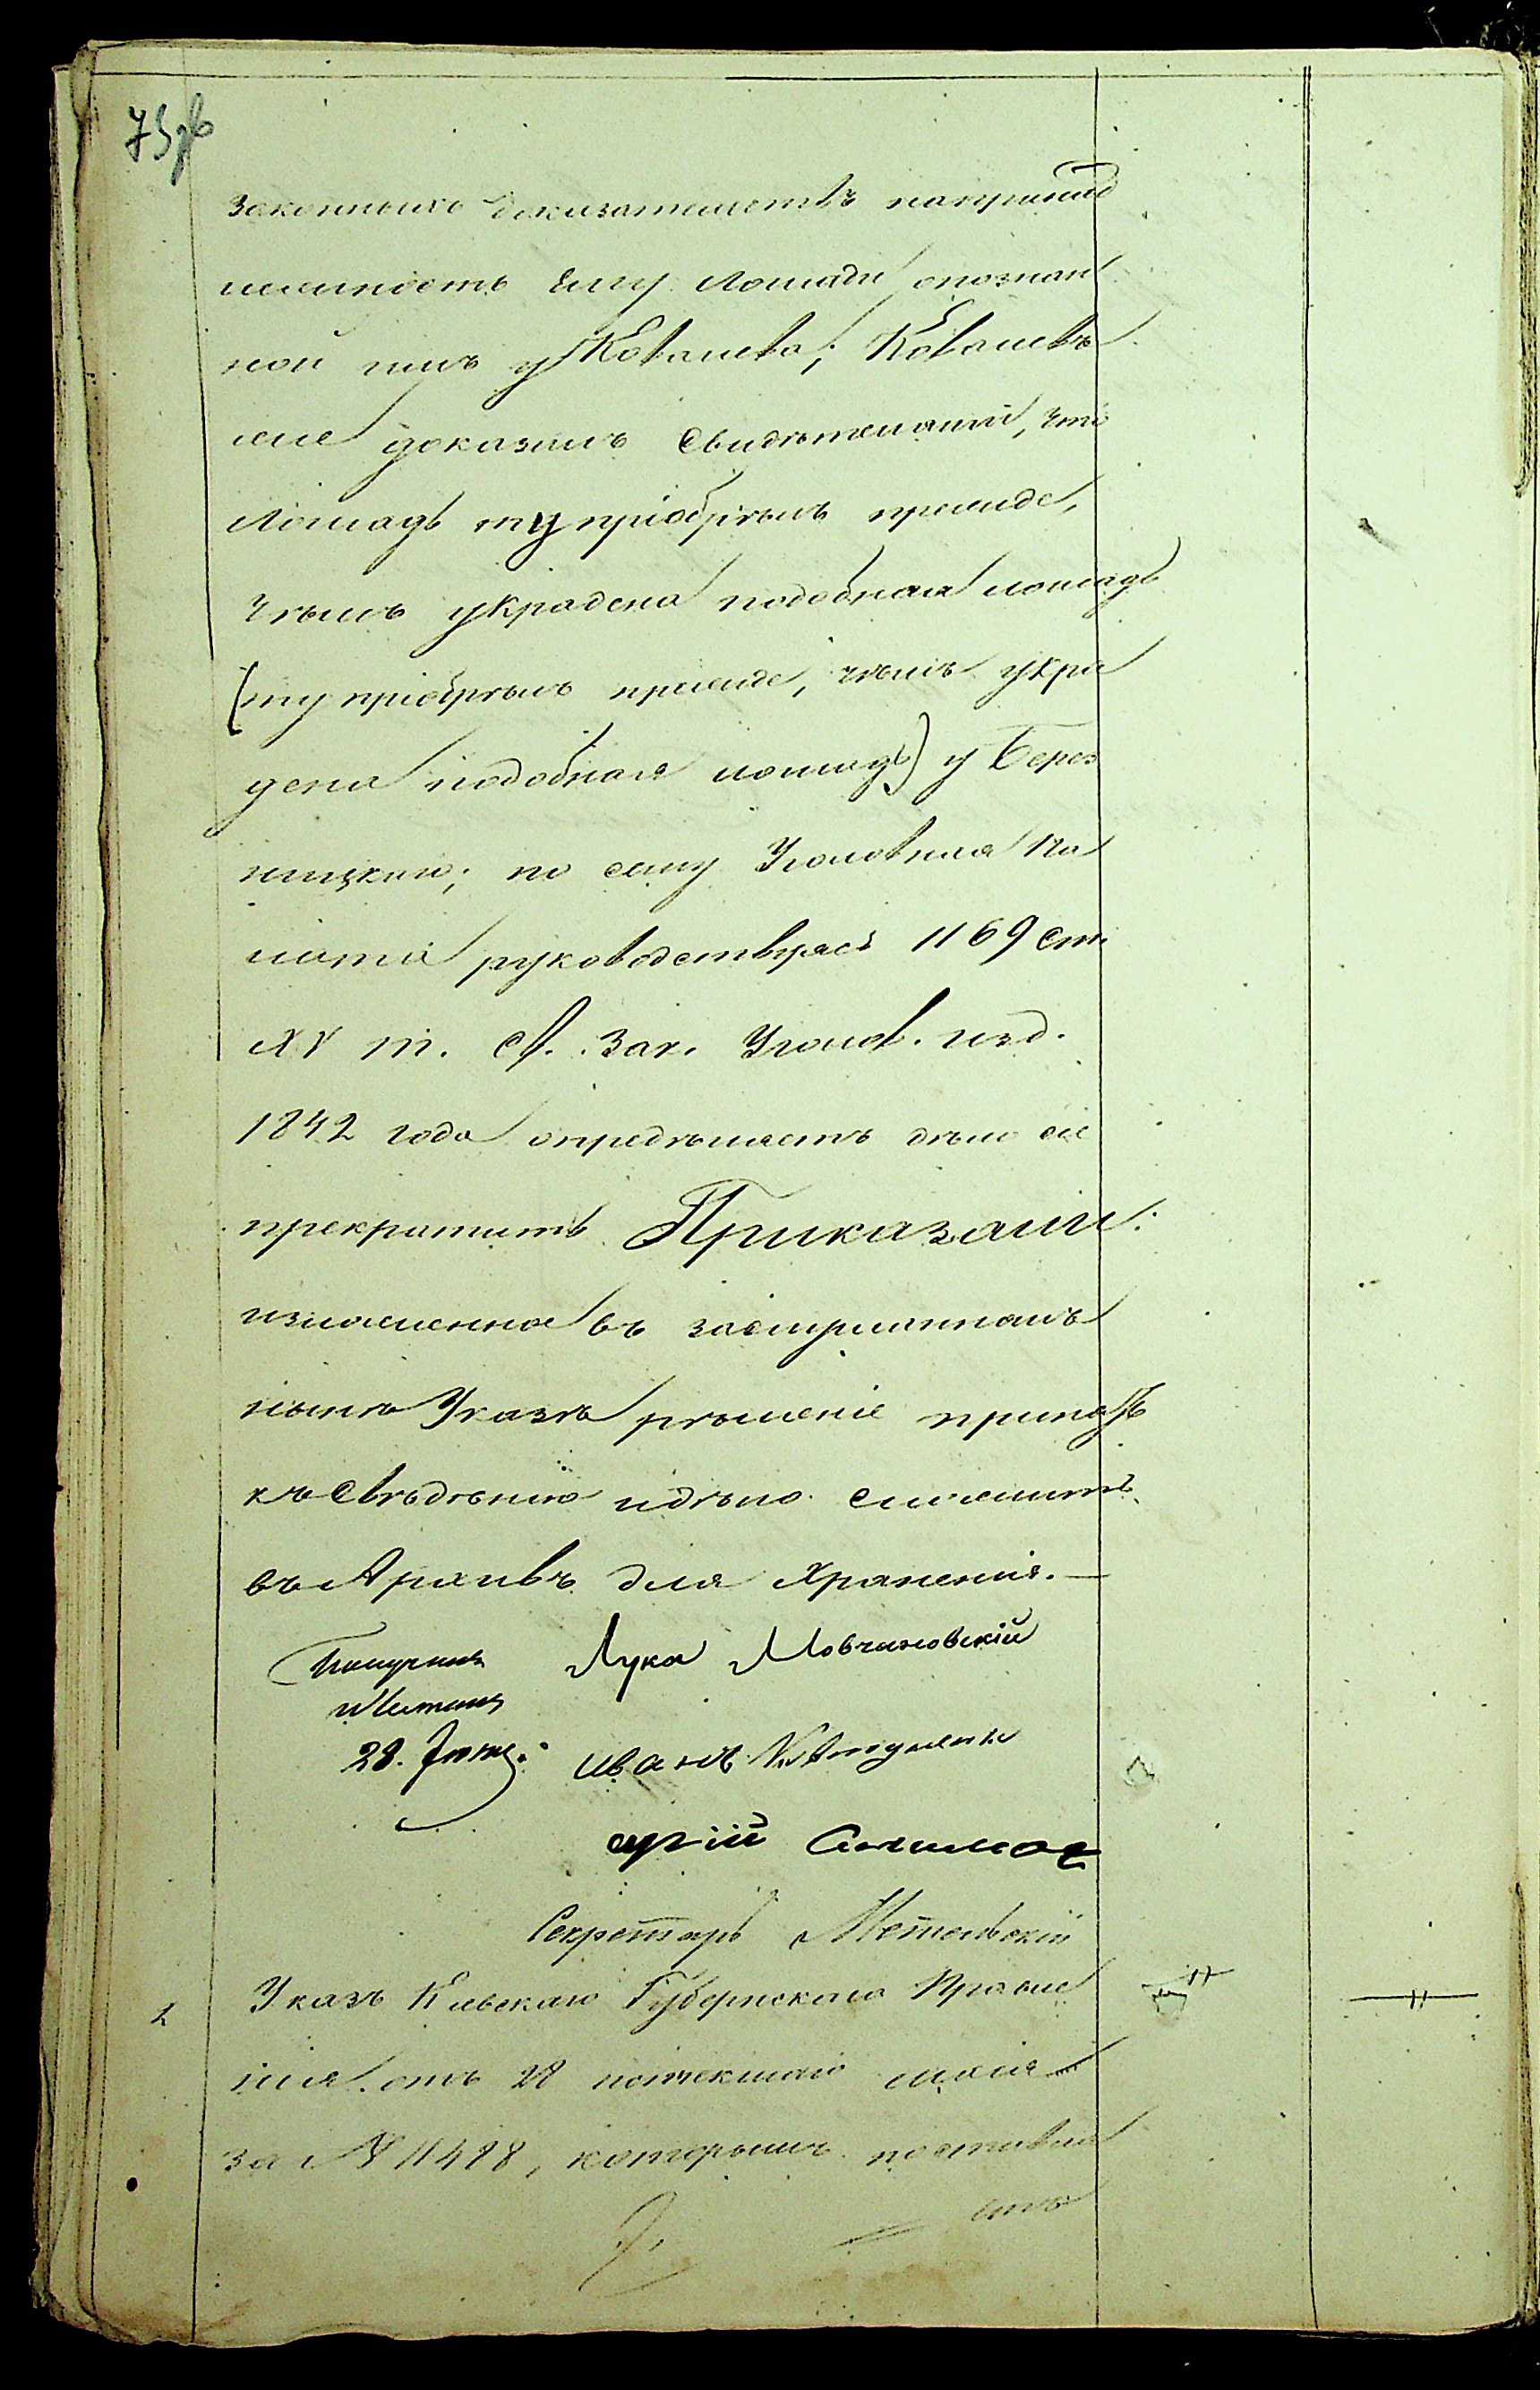 законныхъ доказательствъ напринад
лежность ему лошади опознан
ной имъ у Ковалева; Ковалевъ
же доказалъ свидѣтелями, что
лошадь ту пріобрѣлъ прежде,
чѣмъ украдена подобная лошадь
(ту пріобрѣлъ прежде, чѣмъ укра
дена подобная лошадь) у Берез
ницкаго; по сему Уголовная Па
лата руководствуясь 1169 ст.
XV т. Св. Зак. Уголов. изд.
1842 года опредѣляетъ дѣло сіе
прекратить Приказали:
изложенное въ
Указѣ рѣшеніе принять
къ свѣдѣнію идѣло сложить
въ Архивъ для храненія. —
Лука Мовчановскій
28. Іюня. Иванъ
Секретарь Метельскій
2 Указъ Кіевскаго Губернскаго Правле
нія отъ 28 истекшаго маія
за № 11428, которымъ поставля
етъ